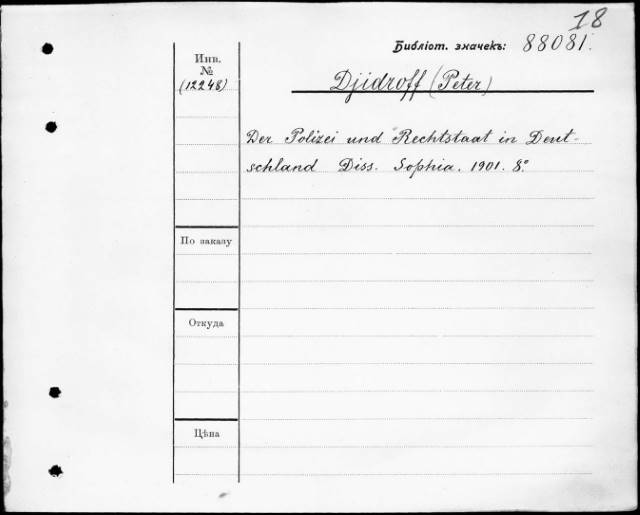 18
Библіот. значекъ: 88081.
Инв.
№
(12248)
Djidroff (Peter)
Der Polizei und Rechtstaat in Deut-
schland Diss. Sophia. 1901. 8°.
По заказу
Откуда
Цѣна